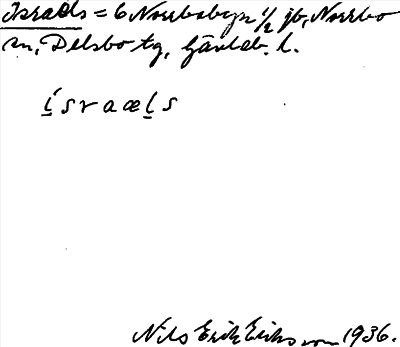 Israels = 6 Norrbobyn 1/2 jb, Norrbo
sn, Delsbo tg, Gävleb. l.
í̱sraæḻs
Nils Erik Eriksson 1936.